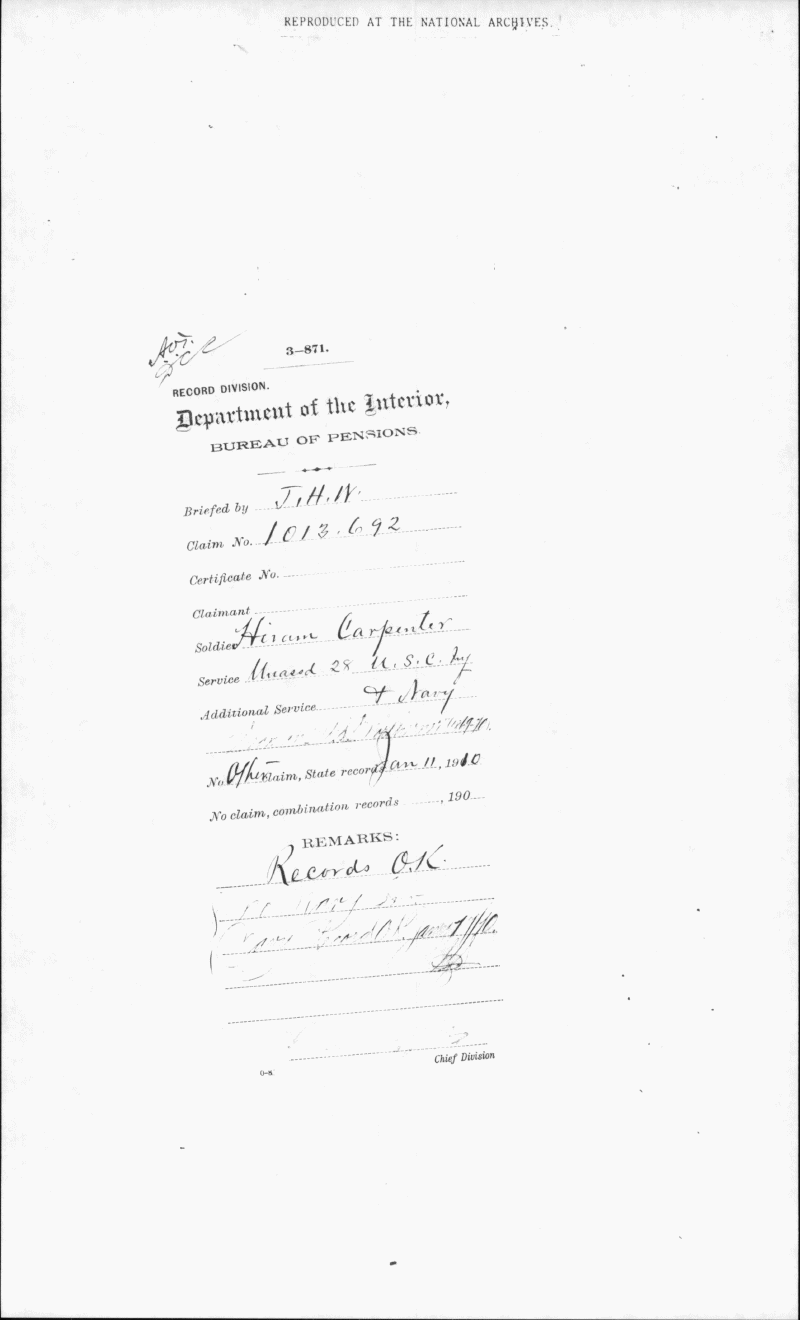 REPRODUCED AT THE NATIONAL ARCHIVES.
3—871.
RECORD DIVISION.
Department of the Interior,
BUREAU OF PENSIONS.
Briefed by J.H.W.
Claim No. 1013.692
Certificate No.
Claimant
Soldier Hiram Carpenter
Service Unassd 28 U.S.C. Iny
Additional Service & Navy
No Other claim, State records Jan 11, 1910
No claim, combination records , 190
REMARKS:
Records O.K.
Record O.K.
Chief Division
0-8